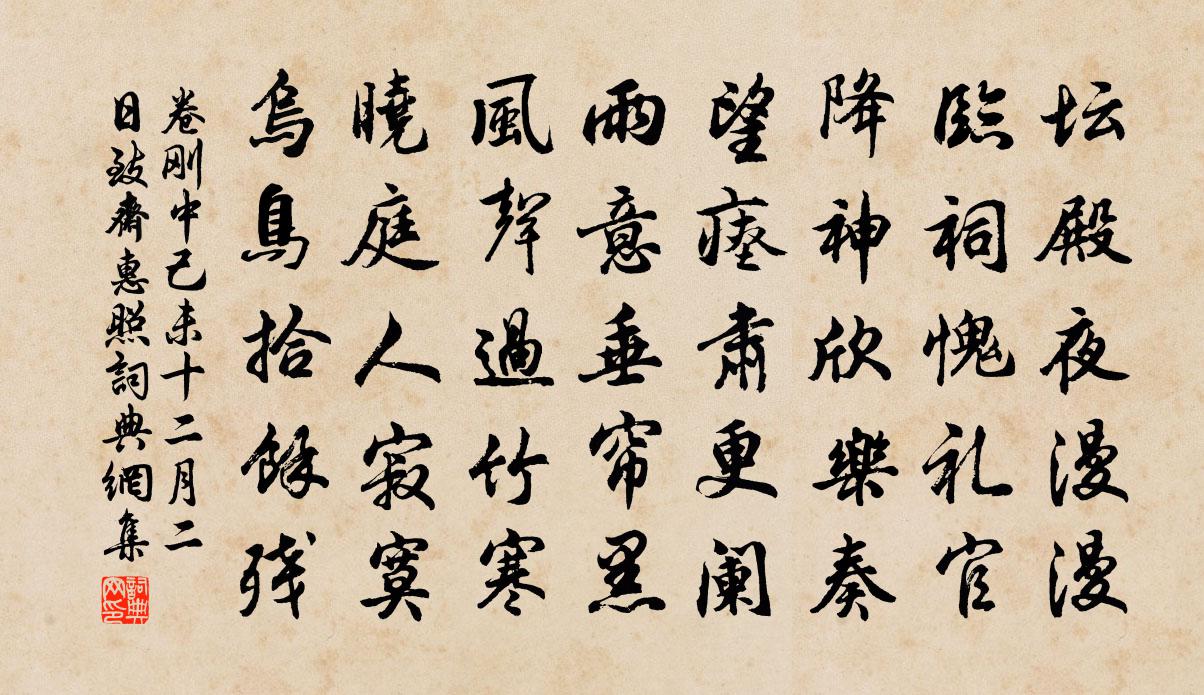 坛殿夜漫漫
臨祠愧礼官
降神欣樂奏
望瘗肅更阑
雨意垂帘黑
風聲過竹寒
曉庭人寂寞
烏鳥拾餘残
卷刚中己未十二月二
日致齋惠照詞典網集
詞典
网印